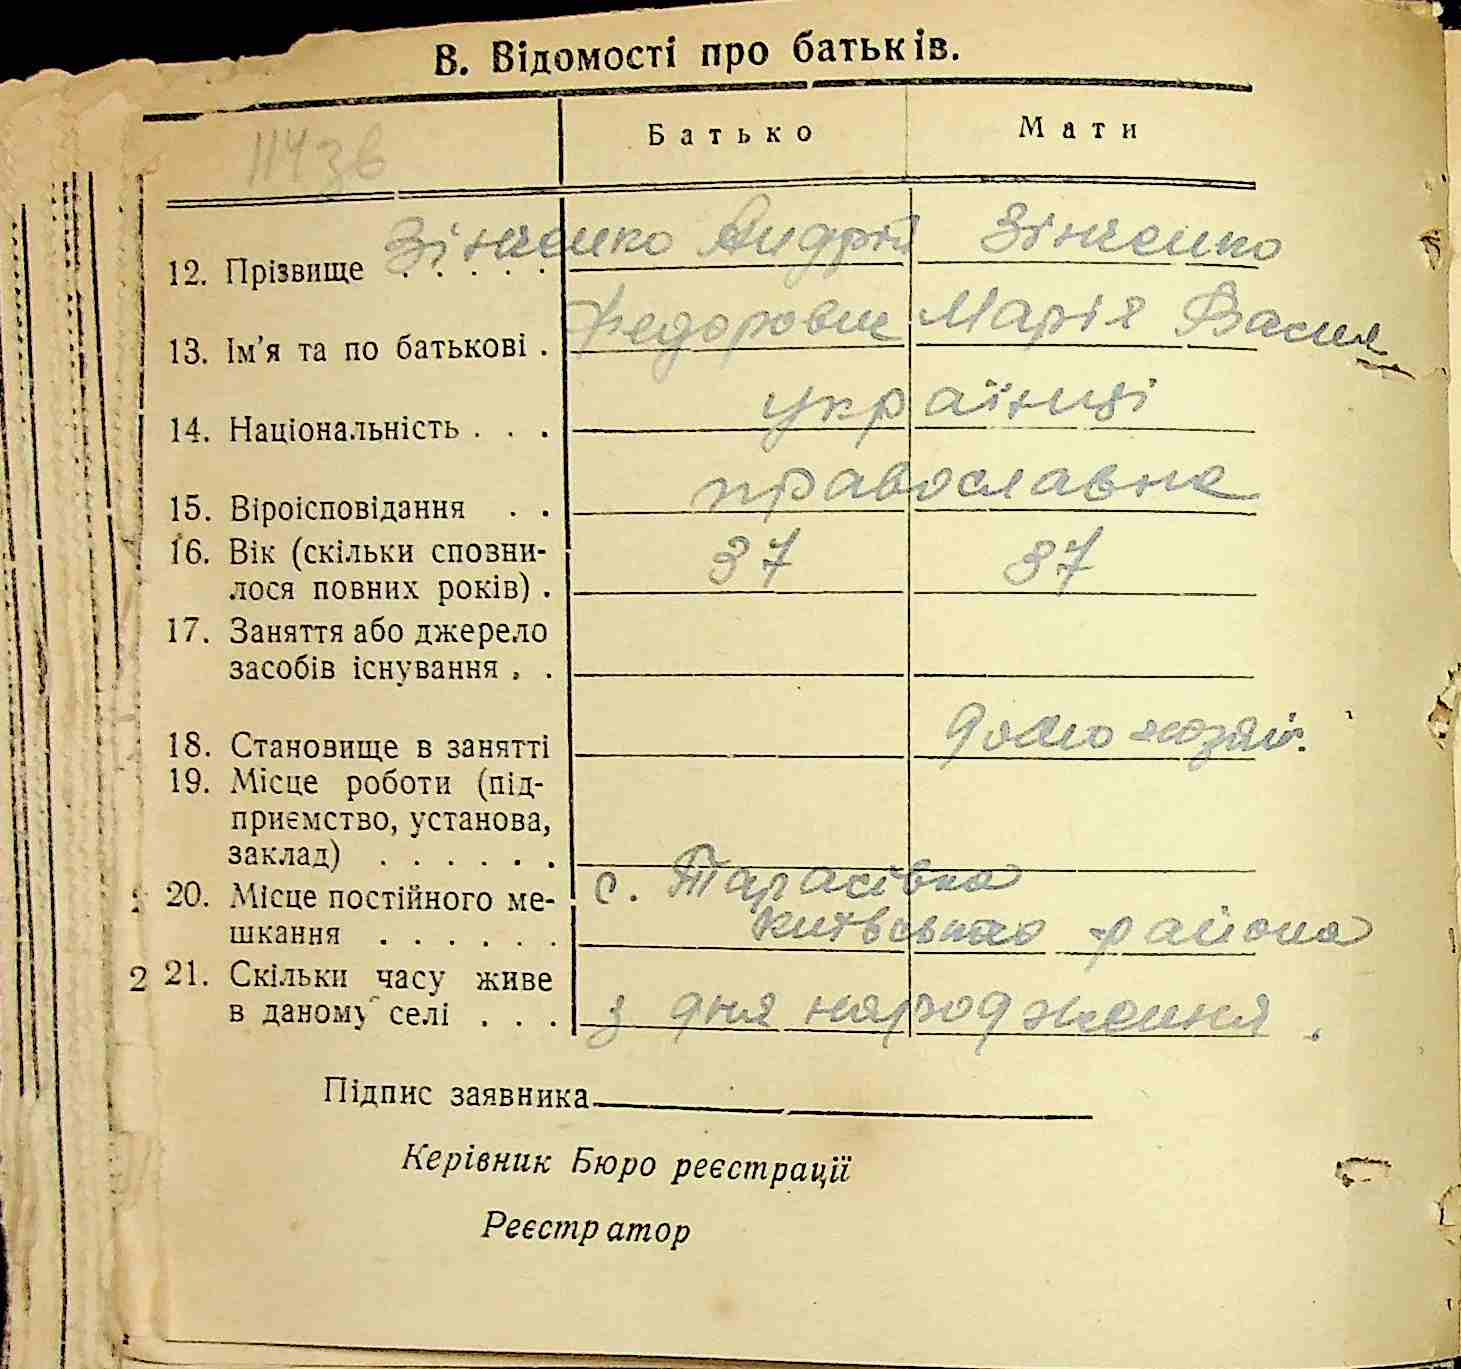 В. Відомості про батьків.
Батько Мати
114зв
12. Прізвище . . . . . Зінченко Андрій Зінченко
13. Ім'я та по батькові . Федорович Марія Васил
14. Національність . . . українці
15. Віроісповідання . . православне
16. Вік (скільки спозни- 37 37
лося повних років) .
17. Заняття або джерело
засобів існування . .
18. Становище в занятті домохозяй.
19. Місце роботи (під-
приємство, установа,
заклад) . . . . . .
20. Місце постійного ме- с. Тарасівка
шкання . . . . . . Київського района
2 21. Скільки часу живе
в даному селі . . . з дня народження.
Підпис заявника
Керівник Бюро реєстрації
Реєстратор